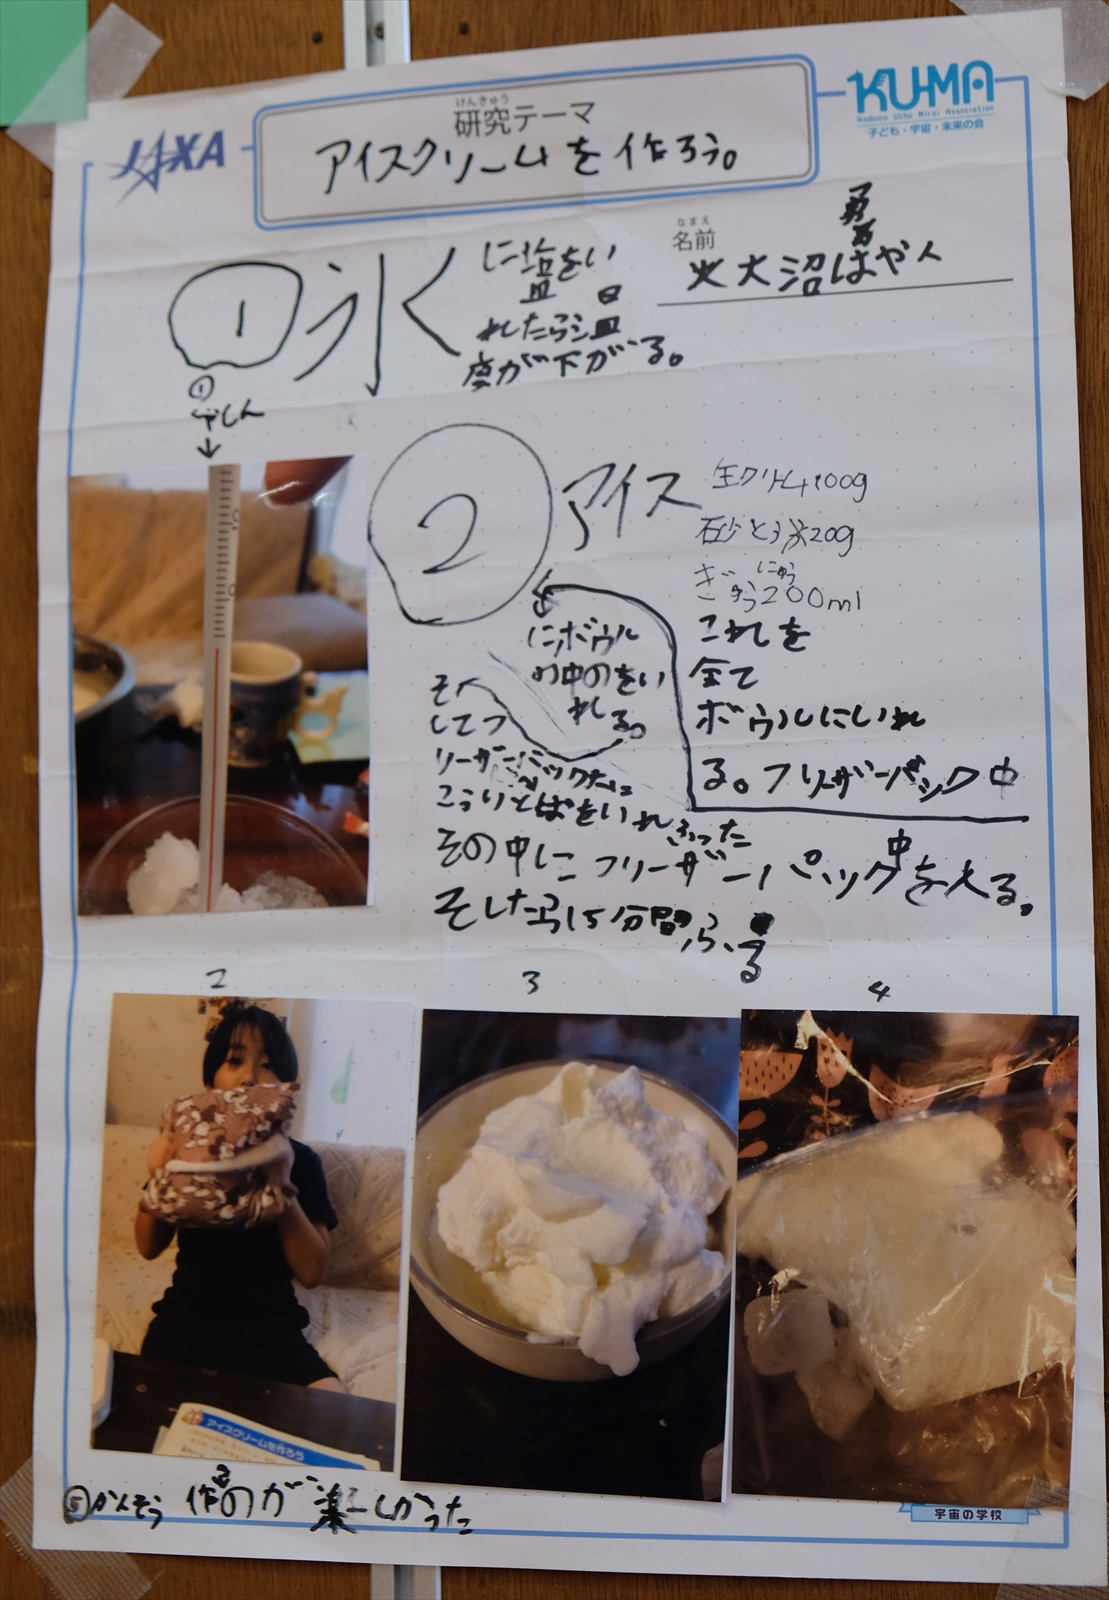 JAXA
けんきゅう
研究テーマ
アイスクリームを作ろう。
KU-MA
Kodomo Uchu Mirai Association
子ども・宇宙・未来の会
なまえ
名前
大沼はや人
1
氷
に塩をい
れたら温
度が下がる。
①
しゃしん
2
アイス
生クリーム100g
砂とう20g
ぎゅうにゅう200ml
これを
全て
ボウルにいれ
る。フリーザーパック中
にボウル
の中のをい
れる。
そ
してフ
リーザーパックに
こうりとしおをいれ
その中にフリーザーパックを入る。
そしたら15分間ふる
2
3
4
アイスクリームを作ろう
⑤かんそう 作るのが楽しかった
宇宙の学校